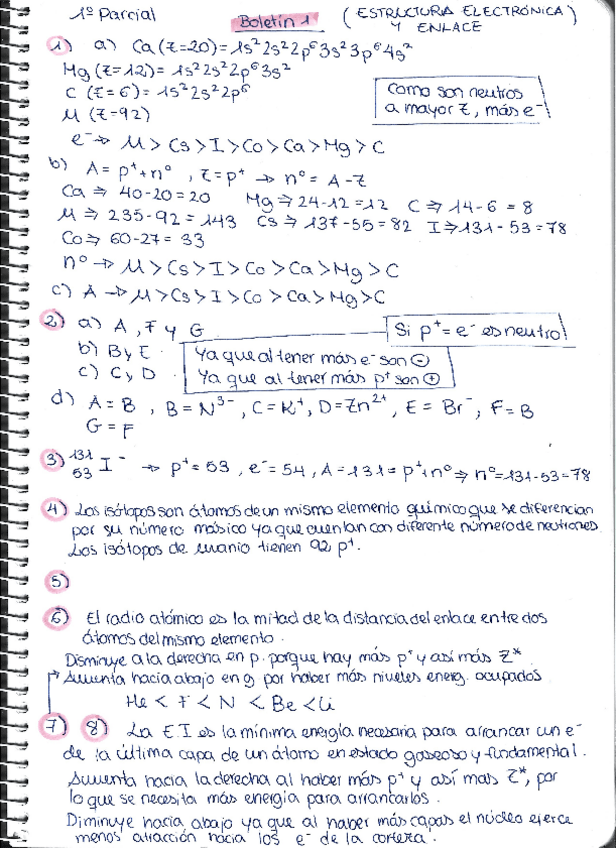 1º Parcial
Boletín 1 (ESTRUCTURA ELECTRÓNICA)
Y ENLACE
1) a) Ca (Z=20) = 1s² 2s² 2p⁶ 3s² 3p⁶ 4s²
Mg (Z=12) = 1s² 2s² 2p⁶ 3s²
C (Z=6) = 1s² 2s² 2p⁶
U (Z=92)
Como son neutros
a mayor Z, más e⁻
e⁻ → U > Cs > I > Co > Ca > Mg > C
b) A = p⁺ + nº , Z = p⁺ → nº = A - Z
Ca ⇒ 40-20=20 Mg ⇒ 24-12=12 C ⇒ 14-6 = 8
U ⇒ 235-92=143 Cs ⇒ 137-55=82 I ⇒ 131-53=78
Co ⇒ 60-27= 33
nº → U > Cs > I > Co > Ca > Mg > C
c) A → U > Cs > I > Co > Ca > Mg > C
2) a) A, F y G
Si p⁺ = e⁻ es neutro
b) B y E
Ya que al tener más e⁻ son ⊖
c) C y D
Ya que al tener más p⁺ son ⊕
d) A = B , B = N³⁻ , C = K⁺, D = Zn²⁺, E = Br⁻, F = B
G = F
3) ¹³¹₅₃ I⁻ → p⁺ = 53, e⁻ = 54, A = 131 = p⁺ + nº ⇒ nº = 131-53=78
4) Los isótopos son átomos de un mismo elemento químico que se diferencian
por su número másico ya que cuentan con diferente número de neutrones
Los isótopos de uranio tienen 92 p⁺.
5)
6) El radio atómico es la mitad de la distancia del enlace entre dos
átomos del mismo elemento.
Disminuye a la derecha en p. porque hay más p⁺ y así más Z*
Aumenta hacia abajo en g por haber más niveles energ. ocupados
He < F < N < Be < Li
7) 8) La E I es la mínima energía necesaria para arrancar un e⁻
de la última capa de un átomo en estado gaseoso y fundamental.
Aumenta hacia la derecha al haber más p⁺ y así mas Z*, por
lo que se necesita más energía para arrancarlos.
Diminuye hacia abajo ya que al haber más capas el núcleo ejerce
menos atracción hacia los e⁻ de la corteza.